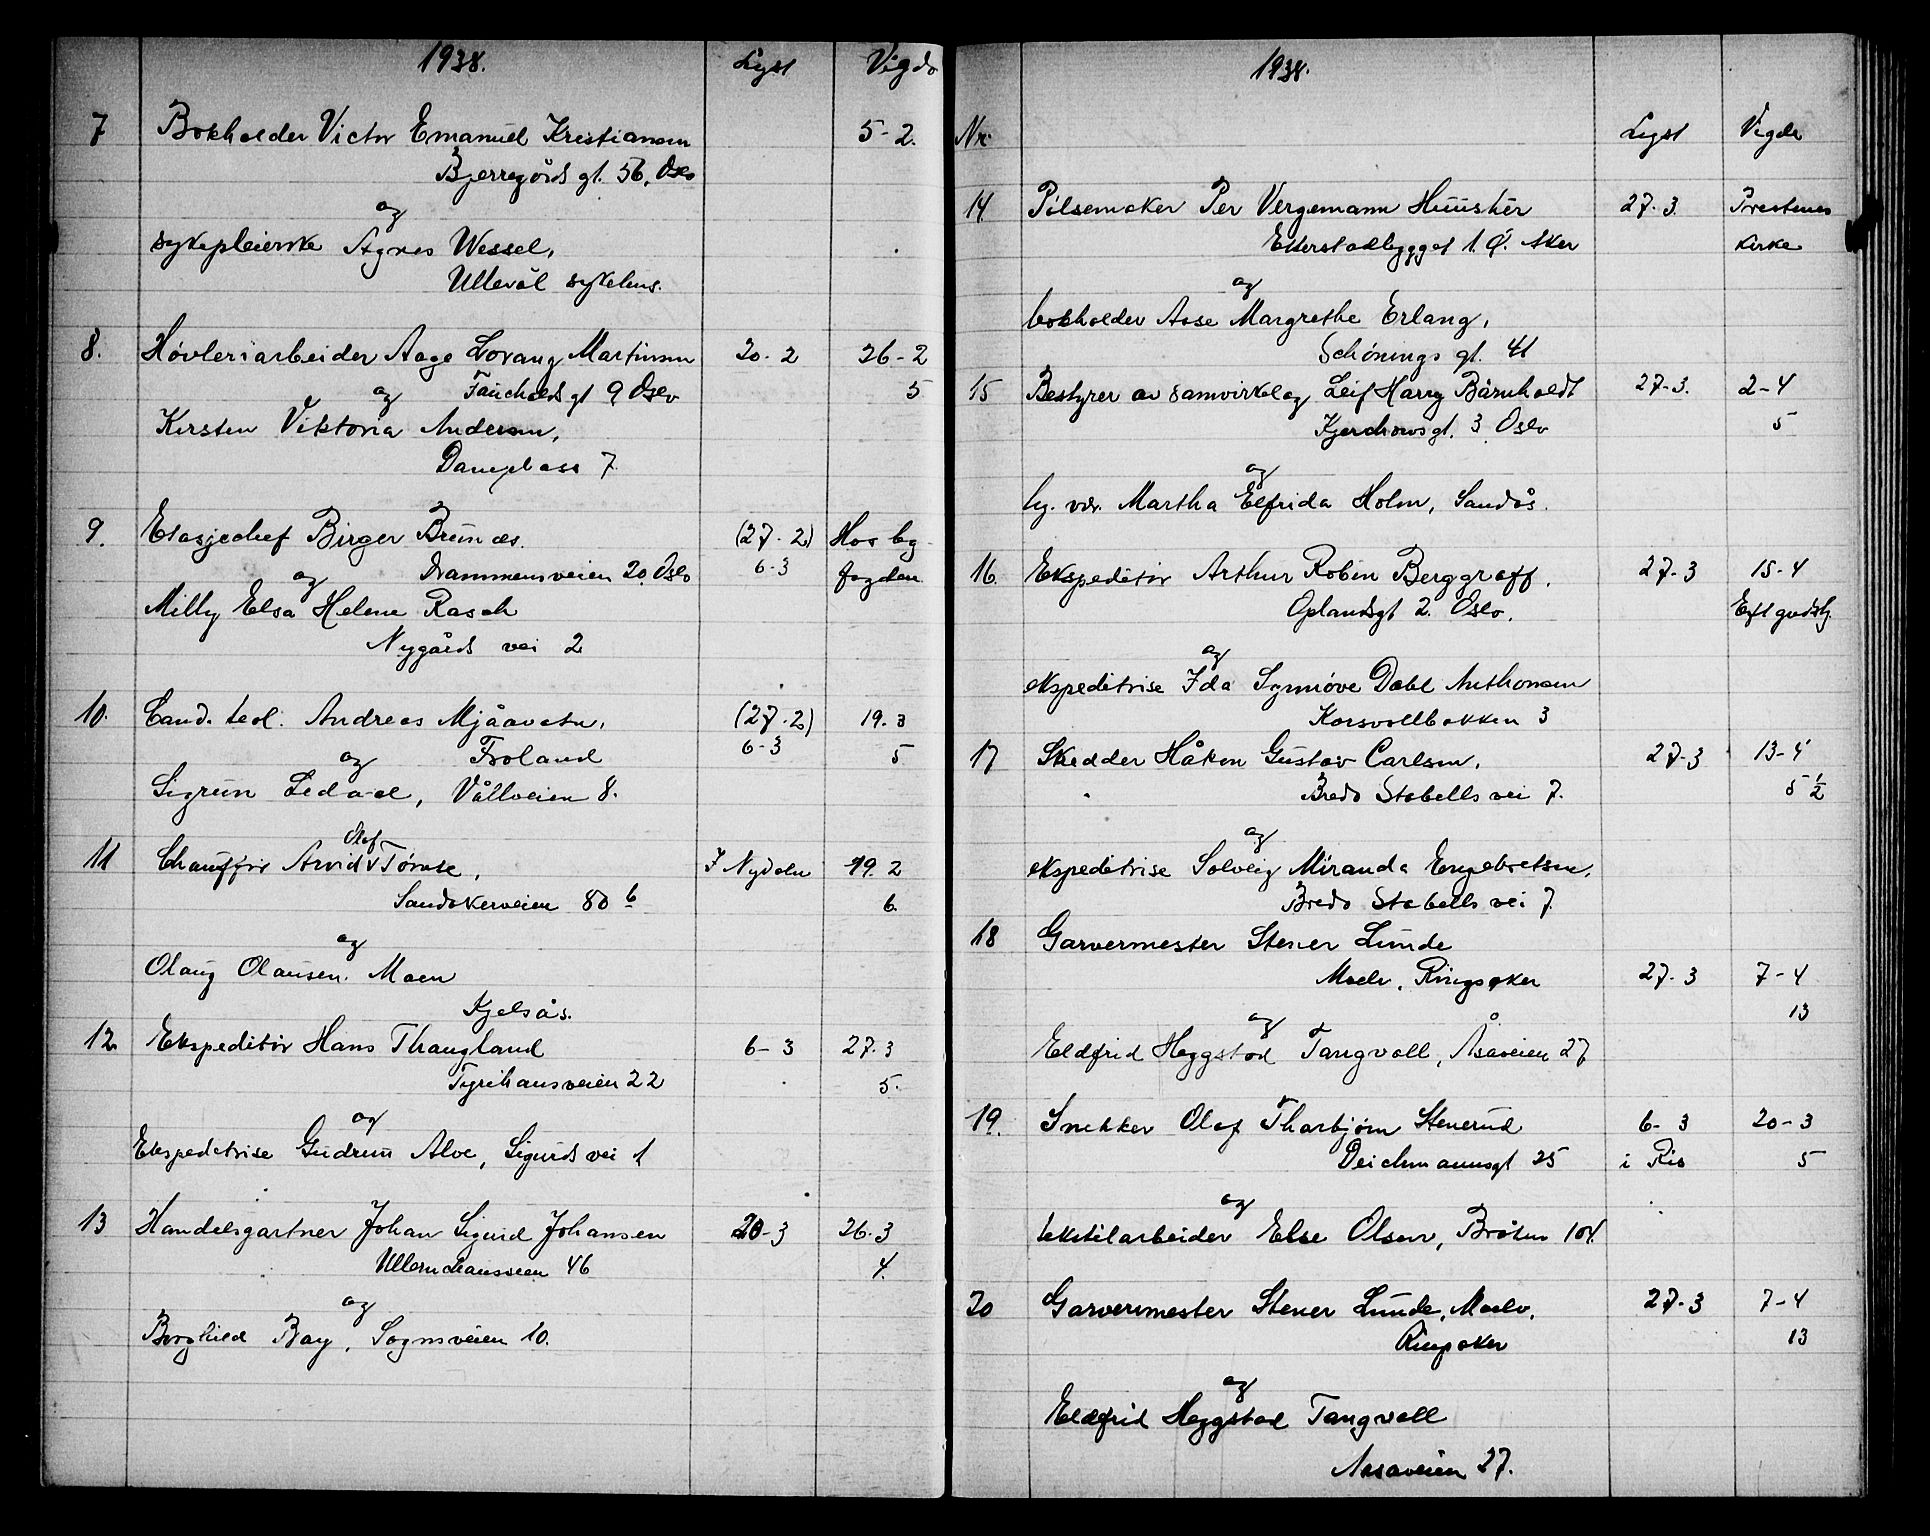 1938. Lyst Vigde
7 Bokholder Victor Emanuel Kristiansen 5-2.
Bjerregårds gt. 56, Oslo
og
sykepleierske Agnes Wessel,
Ullevål sykehus.
8. Høvleriarbeider Aage Lorang Martinsen 20-2 26-2
og Fauchalds gt 9 Oslo 5
Kirsten Viktoria Andersen,
Damplass 7.
9. Etasjechef Birger Brunæs. (27-2) Hos by
og Drammensveien 20. Oslo 6-3 fogden
Milly Elsa Helene Rasch
Nygårds vei 2
10. Cand. teol. Andreas Mjåavatn, (27-2) 19.3
og Froland 6-3 5
Sigrun Ledaal, Vållveien 8.
Olaf
11 Chauffør Arvid v Tømte, I Nydalen 19.2
Sandakerveien 80 b 6.
og
Olaug Olausen. Moen
Kjelsås.
12. Ekspeditør Hans Thaugland 6-3 27.3
Tyrihansveien 22 5.
og
Ekspeditrise Gudrun Alve, Sigurds vei 1
13 Handelsgartner Johan Sigurd Johansen 20-3 26.3
Ullernchausseen 46 4.
og
Borghild Bay, Sognsveien 10.
1938.
Nr. Lyst Vigde
14 Pølsemaker Per Vergemann Huustér 27.3. Prestenes
Etterstadbygget 1. Ø. Aker kirke
og
bokholder Aase Margrethe Erlang,
Schønings gt. 41
15 Bestyrer av samvirkelag Leif Harry Bårnholdt 27-3. 2-4
Kjerchowsgt. 3 Oslo 5
og
Martha Elfrida Holm, Sandås.
16. Ekspeditør Arthur Robin Berggraff. 27-3 15-4
Oplandsgt 2. Oslo. Eft gudstj.
og
ekspeditrise Ida Synnøve Dahl Anthonsen
Korsvollbakken 3
17 Skredder Håkon Gustav Carlsen, 27-3 13-4
Bredo Stabells vei 7. 5 1/2
og
ekspeditrise Solveig Miranda Engebretsen,
Bredo Stabells vei 7.
18 Garvermester Stener Lunde
Moelv, Ringsaker 27-3 7-4
og 13
Eldfrid Heggstad Tangvall, Åsaveien 27
19. Snekker Olaf Tharbjørn Stenerud 6-3 20-3
Deichmannsgt 25 i Ris 5
og
tekstilarbeider Else Olsen, Bråten 104.
20 Garvermester Stener Lunde, Moelv, 27-3 7-4
Ringsaker 13
og
Eldfrid Heggstad Tangvall
Aasaveien 27.